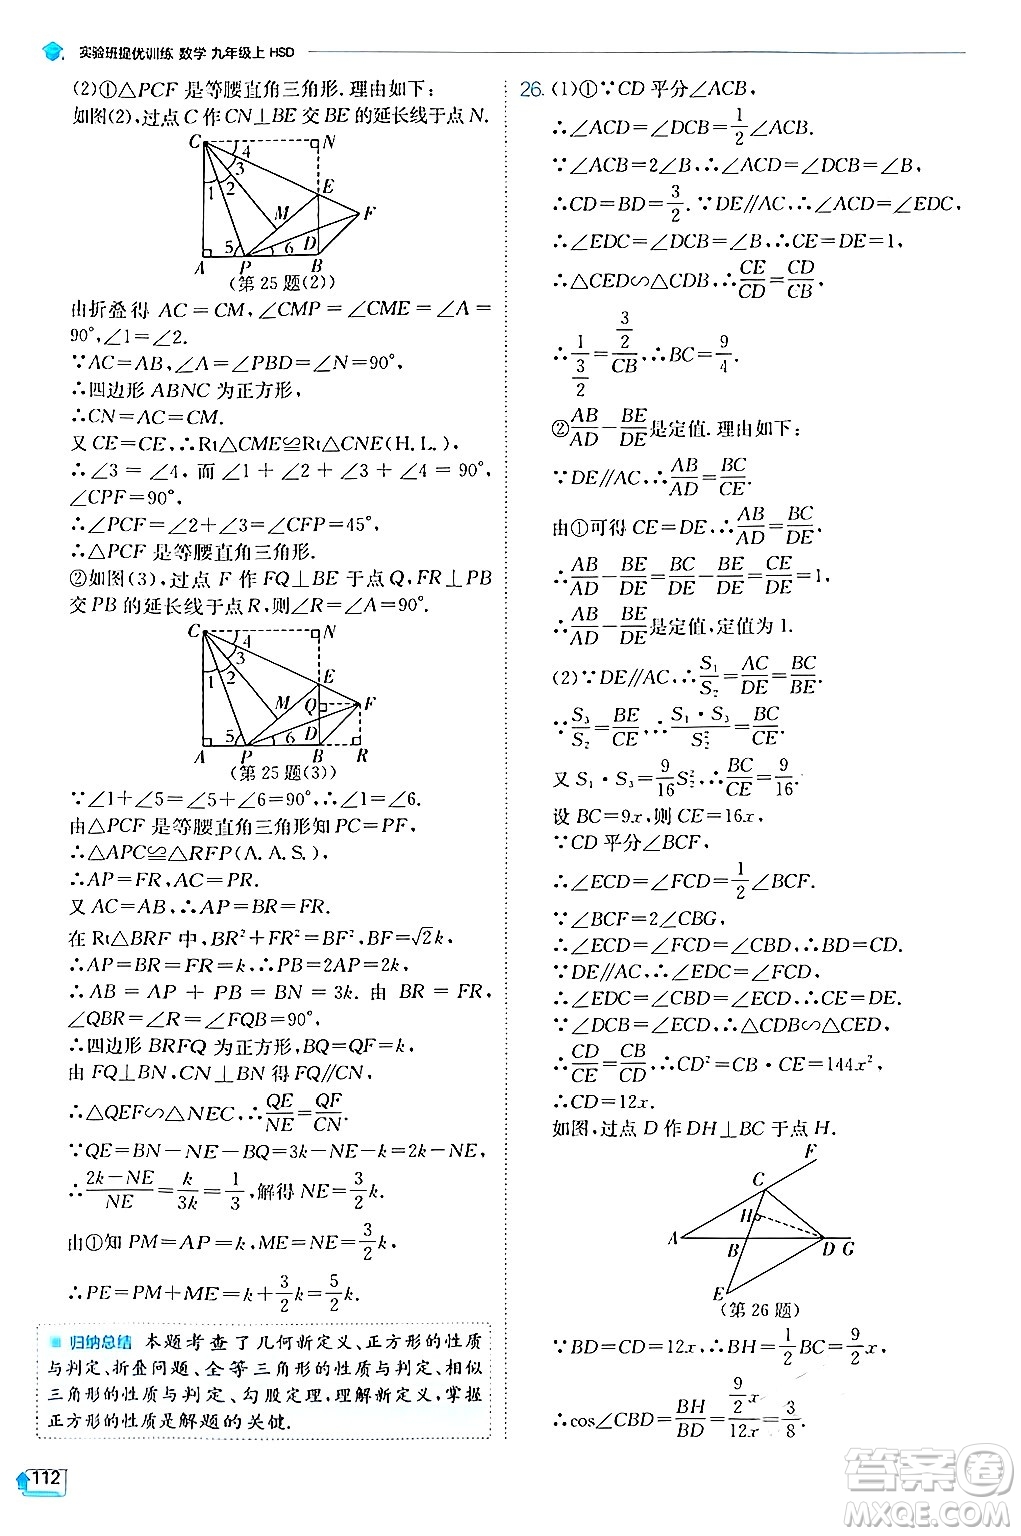 实验班提优训练 数学 九年级上 HSD
(2)①△PCF是等腰直角三角形.理由如下:
如图(2),过点C作CN⊥BE交BE的延长线于点N.
C 4 3 1 2 N E M F 5 6 D A P B
(第25题(2))
由折叠得 AC=CM,∠CMP=∠CME=∠A=
90°,∠1=∠2.
∵AC=AB,∠A=∠PBD=∠N=90°,
∴四边形ABNC为正方形,
∴CN=AC=CM.
又CE=CE,∴Rt△CME≌Rt△CNE(H.L.),
∴∠3=∠4,而∠1+∠2+∠3+∠4=90°,
∠CPF=90°,
∴∠PCF=∠2+∠3=∠CFP=45°,
∴△PCF是等腰直角三角形.
②如图(3),过点F作FQ⊥BE于点Q,FR⊥PB
交PB的延长线于点R,则∠R=∠A=90°.
C 4 3 1 2 N E M Q F 5 6 D A P B R
(第25题(3))
∵∠1+∠5=∠5+∠6=90°,∴∠1=∠6.
由△PCF是等腰直角三角形知PC=PF,
∴△APC≌△RFP(A.A.S.),
∴AP=FR,AC=PR.
又AC=AB,∴AP=BR=FR.
在Rt△BRF中,BR²+FR²=BF²,BF=√2k,
∴AP=BR=FR=k,∴PB=2AP=2k,
∴AB=AP+PB=BN=3k.由BR=FR,
∠QBR=∠R=∠FQB=90°,
∴四边形BRFQ为正方形,BQ=QF=k,
由FQ⊥BN,CN⊥BN得FQ∥CN,
∴△QEF∽△NEC,∴QE/NE=QF/CN.
∵QE=BN-NE-BQ=3k-NE-k=2k-NE,
∴(2k-NE)/NE=k/3k=1/3,解得NE=3/2k.
由①知PM=AP=k,ME=NE=3/2k,
∴PE=PM+ME=k+3/2k=5/2k.
归纳总结 本题考查了几何新定义、正方形的性质
与判定、折叠问题、全等三角形的性质与判定、相似
三角形的性质与判定、勾股定理,理解新定义,掌握
正方形的性质是解题的关键.
112
26.(1)①∵CD平分∠ACB,
∴∠ACD=∠DCB=1/2∠ACB.
∵∠ACB=2∠B,∴∠ACD=∠DCB=∠B,
∴CD=BD=3/2.∵DE∥AC,∴∠ACD=∠EDC,
∴∠EDC=∠DCB=∠B,∴CE=DE=1,
∴△CED∽△CDB,∴CE/CD=CD/CB,
∴1/(3/2)=(3/2)/CB,∴BC=9/4.
②AB/AD-BE/DE是定值.理由如下:
∵DE∥AC,∴AB/AD=BC/CE.
由①可得CE=DE,∴AB/AD=BC/DE,
∴AB/AD-BE/DE=BC/DE-BE/DE=CE/DE=1,
∴AB/AD-BE/DE是定值,定值为1.
(2)∵DE∥AC,∴S₁/S₂=AC/DE=BC/BE.
∵S₃/S₂=BE/CE,∴S₁·S₃/S₂²=BC/CE.
又S₁·S₃=9/16S₂²,∴BC/CE=9/16.
设BC=9x,则CE=16x,
∵CD平分∠BCF,
∴∠ECD=∠FCD=1/2∠BCF.
∵∠BCF=2∠CBG,
∴∠ECD=∠FCD=∠CBD,∴BD=CD.
∵DE∥AC,∴∠EDC=∠FCD,
∴∠EDC=∠CBD=∠ECD,∴CE=DE.
∵∠DCB=∠ECD,∴△CDB∽△CED,
∴CD/CE=CB/CD,∴CD²=CB·CE=144x²,
∴CD=12x.
如图,过点D作DH⊥BC于点H.
F C H A B D G E
(第26题)
∵BD=CD=12x,∴BH=1/2BC=9/2x,
∴cos∠CBD=BH/BD=(9/2x)/12x=3/8.
答案圈
MXQE.COM